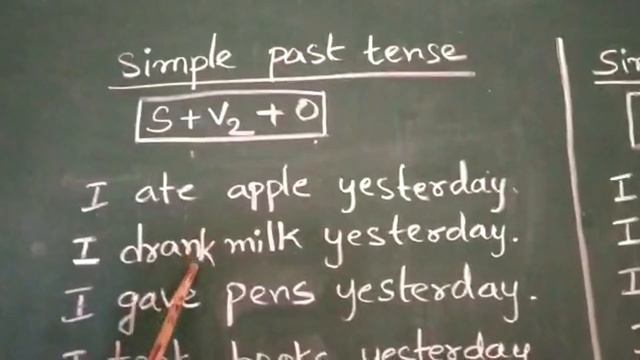 Simple past tense
S+V2+O
I ate apple yesterday.
I drank milk yesterday.
I gave pens yesterday.
I took books yesterday
I
I
I